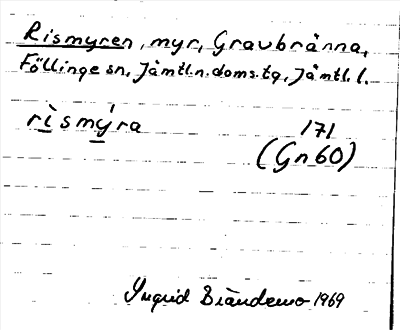 Rismyren, myr, Gravbränna,
Föllinge sn, Jämtl.n.doms.tg, Jämtl. l.
rìsmýra
171
(Gn 60)
Ingrid Brändemo 1969